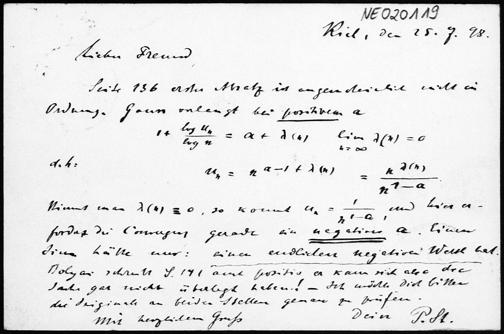 NE020119
Kiel, den 25. 7. 98.
Lieber Freund,
Seite 136 erster Absatz ist augenscheinlich nicht in
Ordnung. Gauss verlangt bei positivem a
1 + log uₙ / log n = a + λ(n)   lim n=∞ λ(n) = 0
d.h:
uₙ = n^(a-1+λ(n)) = n^λ(n) / n^(1-a)
Nimmt man λ(n) ≡ 0, so kommt uₙ = 1/n^(1-a), und hier er-
fordert die Convergenz gerade ein negatives a. Einen
Sinn hätte nur: einen endlichen negativen Werth hat.
Bolyai schreibt S. 141 auch positiv er kann sich also die
Sache gar nicht überlegt haben! – Ich möchte Dich bitten
die Originale an beiden Stellen genau zu prüfen.
Mit herzlichem Gruss   Dein   P. St.